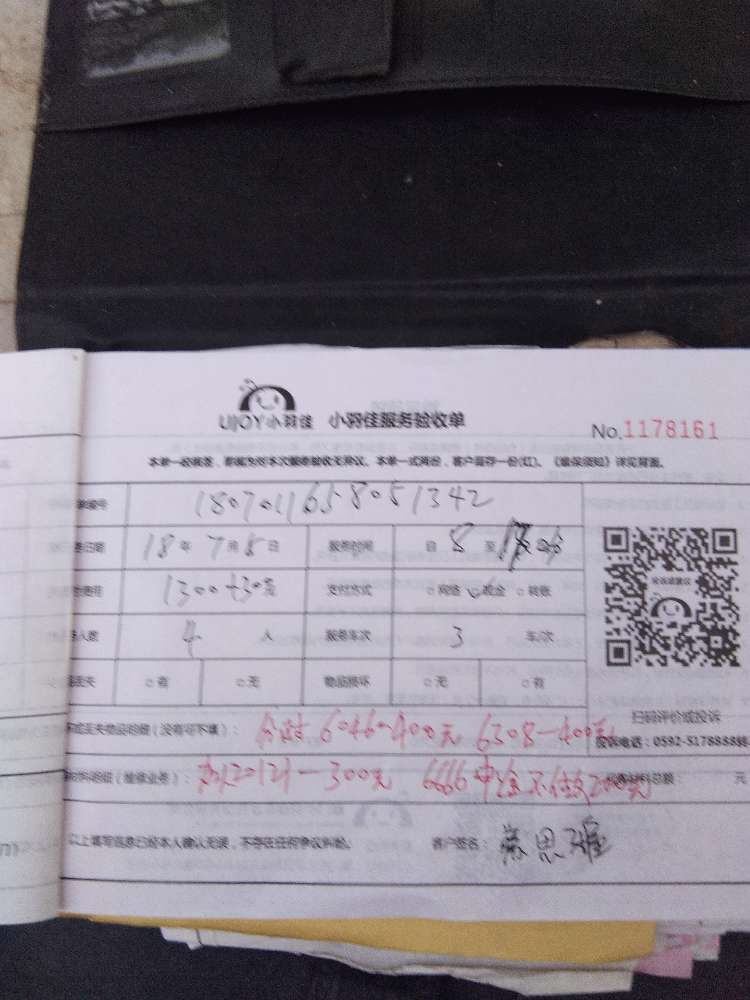 LIJOY小羽佳 小羽佳服务验收单
No.1178161
本单一经核查，即视为对本次服务验收无异议。本单一式两份，客户留存一份(红)。《验保须知》详见背面。
单编号 180701165 8051342
务日期 18年 7月 8日 服务时间 自 8 至
费用 1300+30元 支付方式 □网络 □现金 □转账
人数 4 人 服务车次 3 车/次
丢失 □有 □无 物品损坏 □无 □有
坏或丢失物品明细（没有可不填）： 6046-400元 6308-400元
扫码评价或投诉
投诉电话：0592-5178888
材料明细（维修业务）： -300元 6666 元
以上填写信息已经本人确认无误，不存在任何争议纠纷。 客户签名：